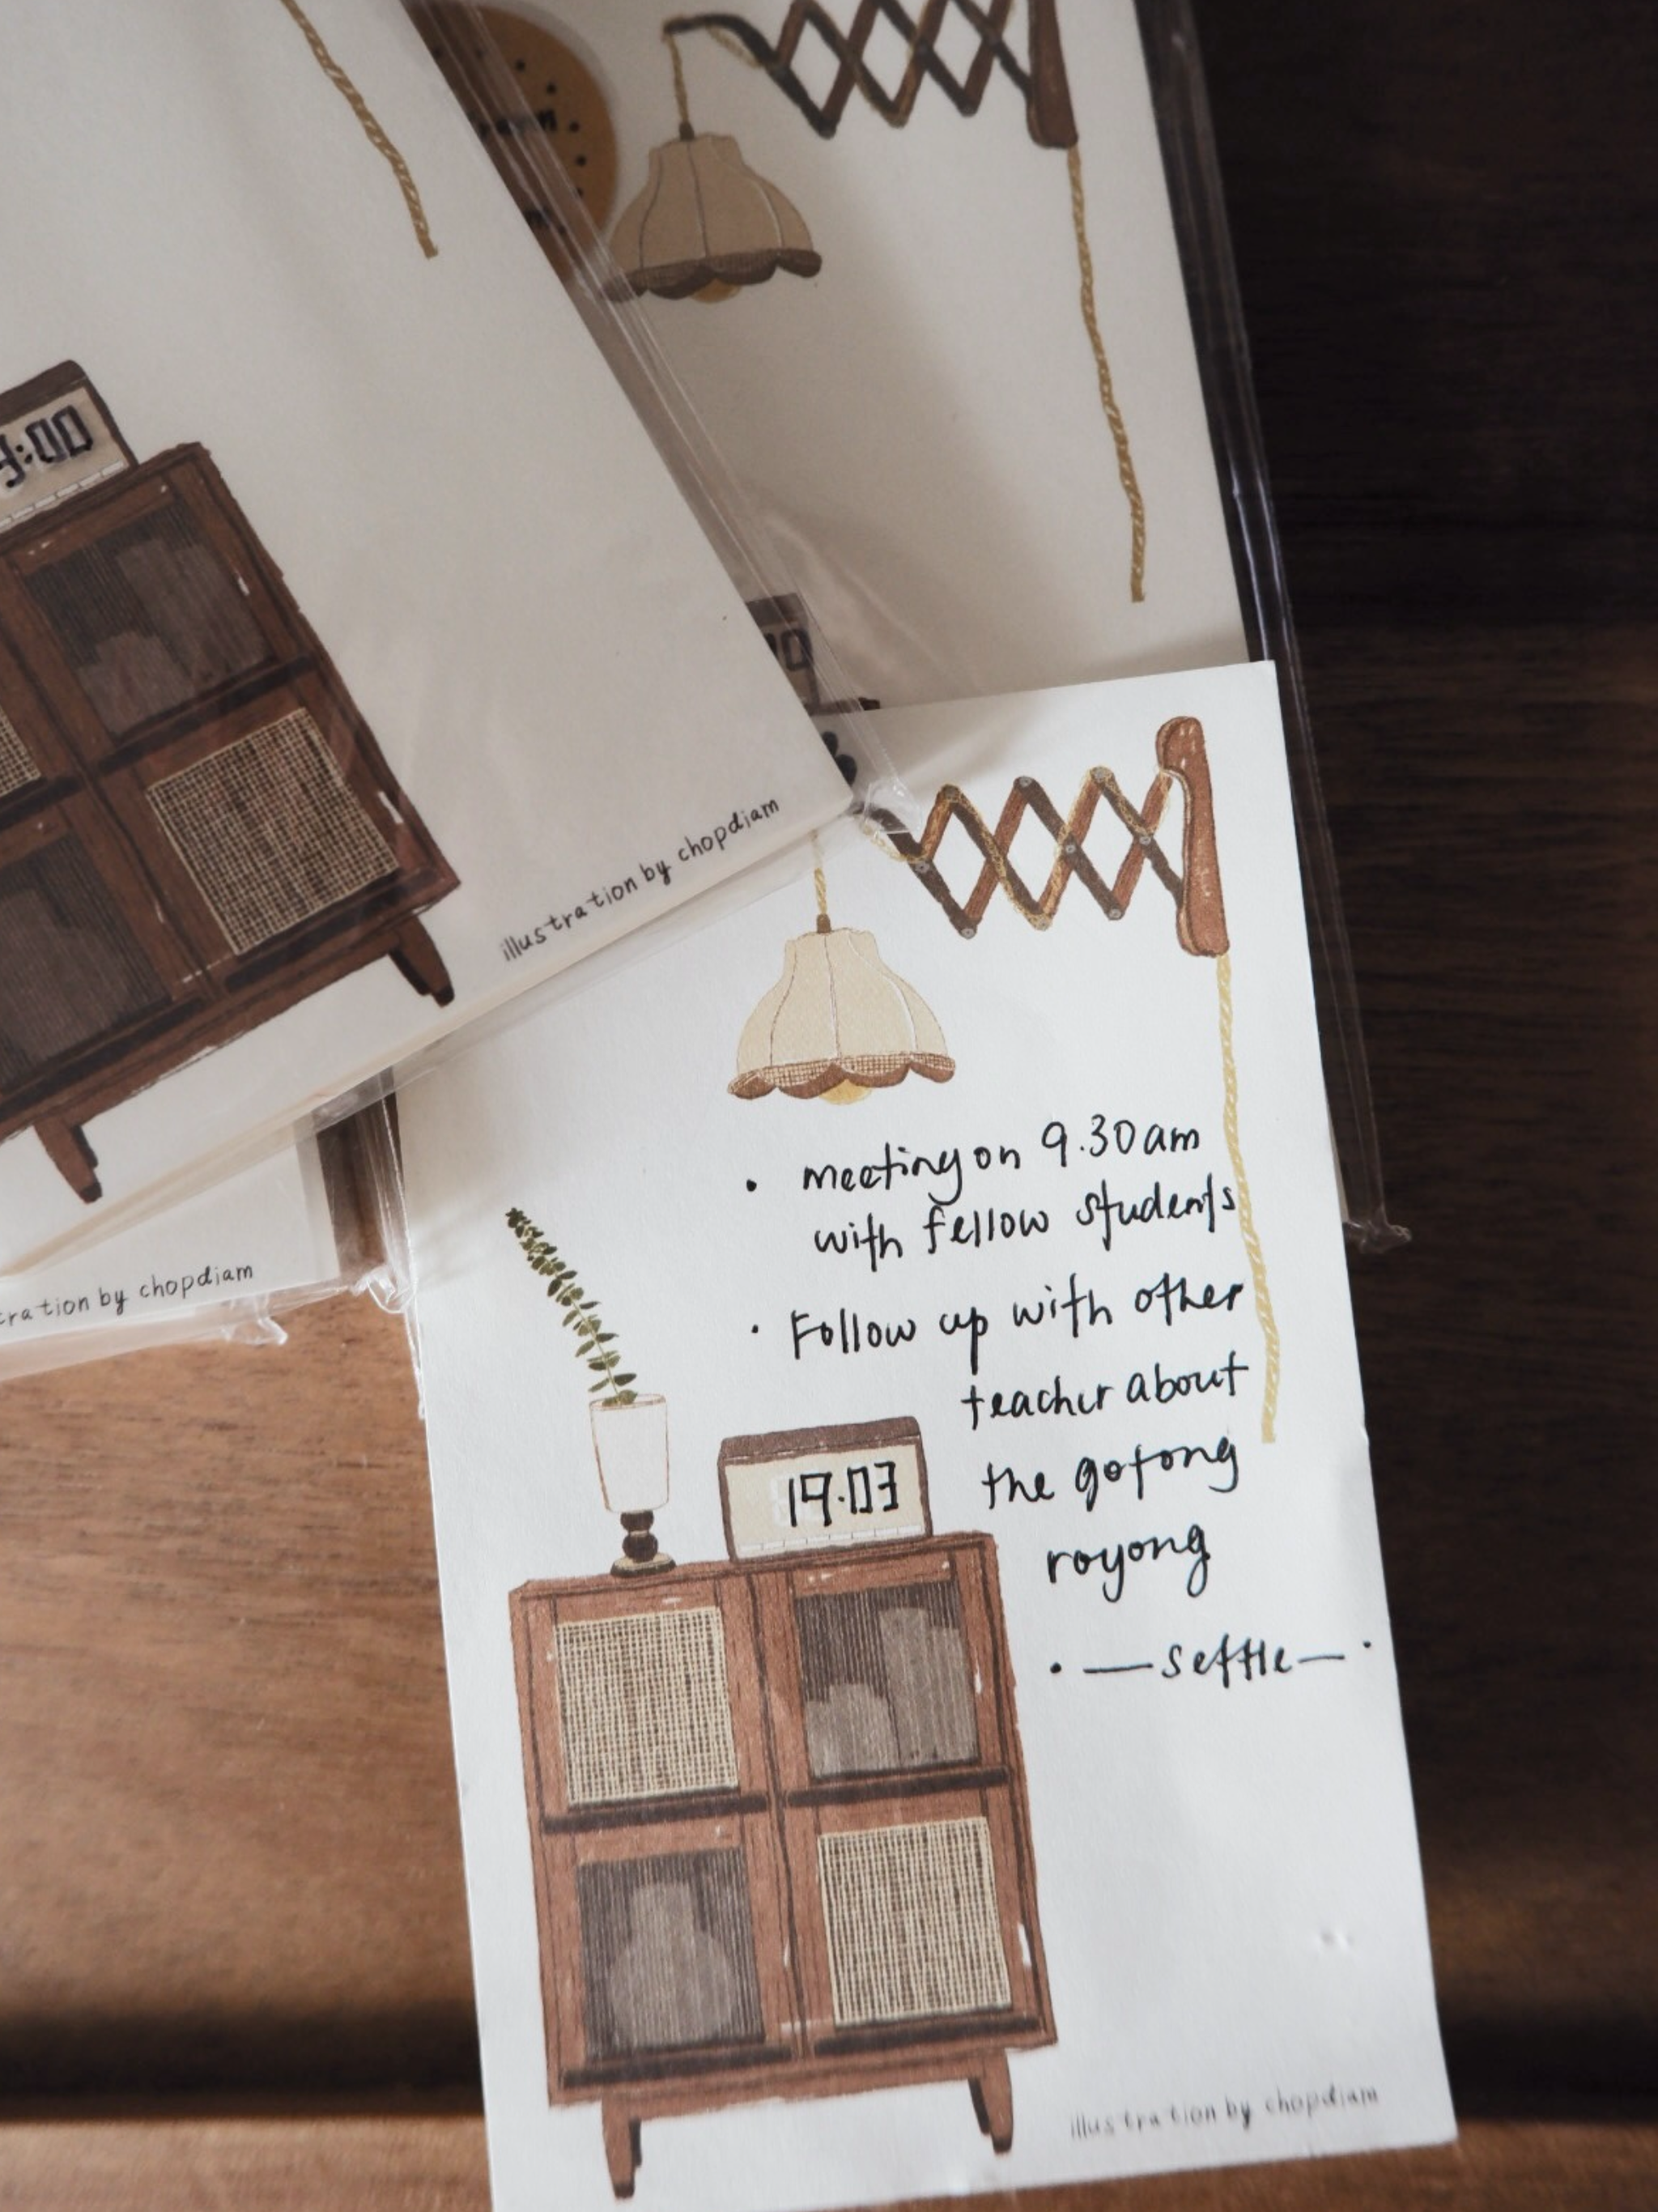 9:00
illustration by chopdiam
tration by chopdiam
• meeting on 9.30am
with fellow students
• Follow up with other
teacher about
the gotong
royong
• — settle — •
19.03
illustration by chopdiam